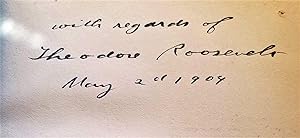 with regards of
Theodore Roosevelt
May 2d 1909